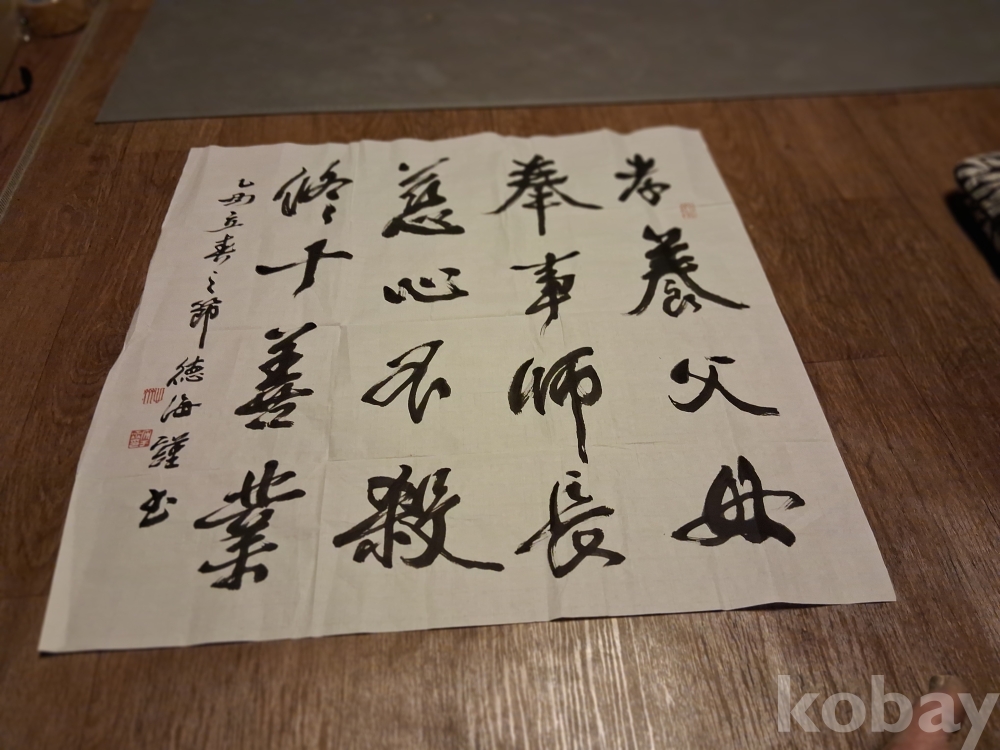 孝養父母
奉事師長
慈心不殺
修十善業
乙丑立春之節 德海謹书
kobay